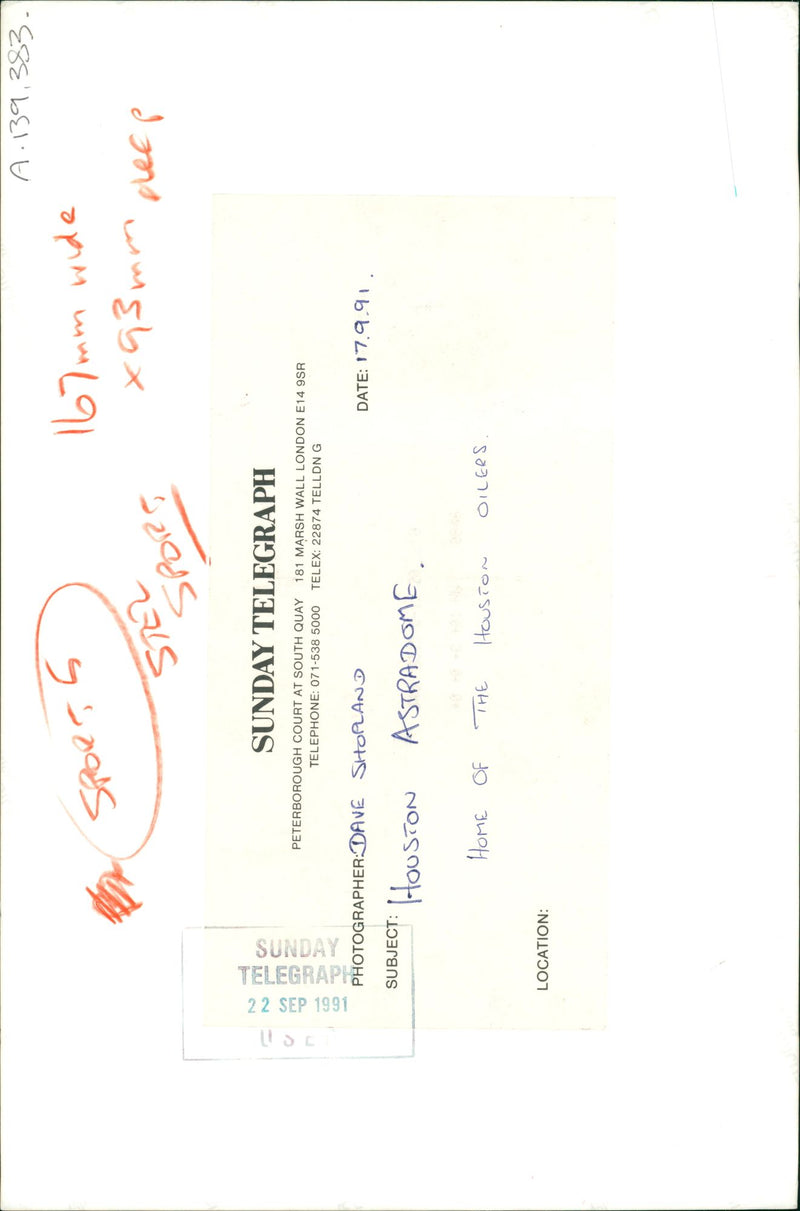 A.139,383.
167mm wide
x93mm deep
SPORT. G
SPORT.
SUNDAY TELEGRAPH
PETERBOROUGH COURT AT SOUTH QUAY 181 MARSH WALL LONDON E14 9SR
TELEPHONE: 071-538 5000 TELEX: 22874 TELLDN G
PHOTOGRAPHER: DAVE SHOPLAND DATE: 17.9.91.
SUBJECT: HOUSTON ASTRADOME.
HOME OF THE HOUSTON OILERS.
LOCATION:
SUNDAY
TELEGRAPH
22 SEP 1991
USED